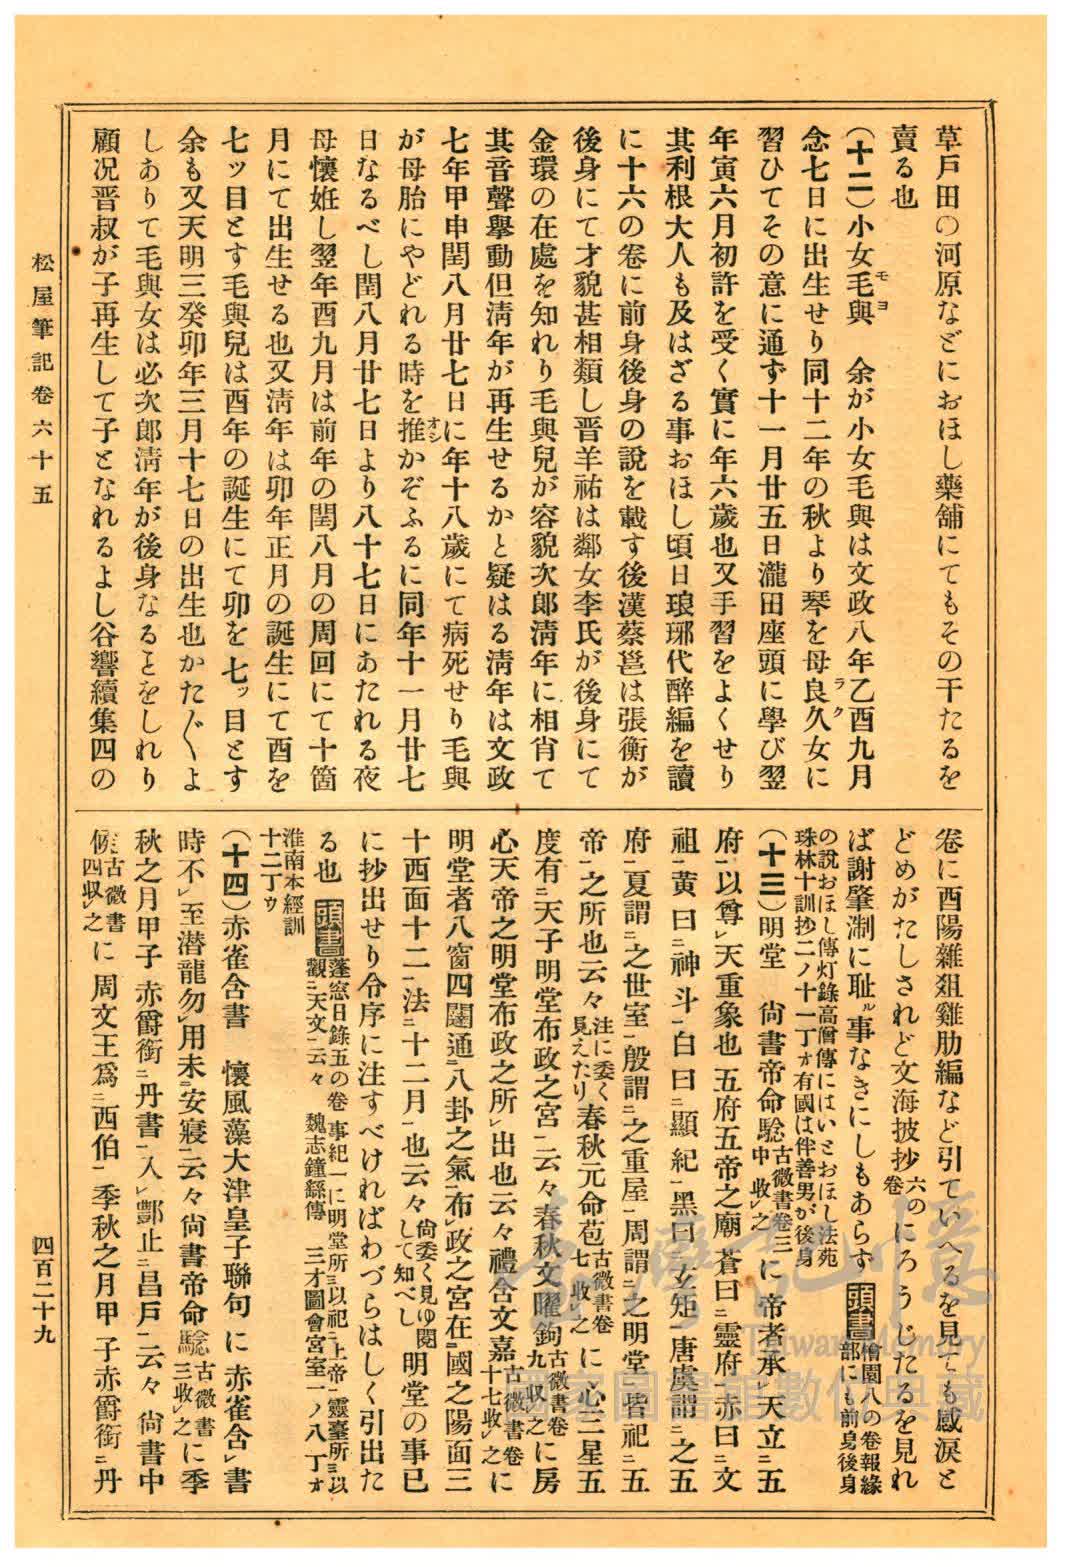 草戸田の河原などにおほし藥舗にてもその干たるを
賣る也
(十二)小女毛與モヨ　余が小女毛與は文政八年乙酉九月
念七日に出生せり同十二年の秋より琴を母良久ラク女に
習ひてその意に通ず十一月廿五日瀧田座頭に學び翌
年寅六月初許を受く實に年六歲也又手習をよくせり
其利根大人も及はざる事おほし頃日琅琊代醉編を讀
に十六の卷に前身後身の說を載す後漢蔡邕は張衡が
後身にて才貌甚相類し晋羊祐は鄰女李氏が後身にて
金環の在處を知れり毛與兒が容貌次郞淸年に相肖て
其音聲擧動但淸年が再生せるかと疑はる淸年は文政
七年甲申閏八月廿七日に年十八歲にて病死せり毛與
が母胎にやどれる時を推オシかぞふるに同年十一月廿七
日なるべし閏八月廿七日より八十七日にあたれる夜
母懷姙し翌年酉九月は前年の閏八月の周回にて十箇
月にて出生せる也又淸年は卯年正月の誕生にて酉を
七ッ目とす毛與兒は酉年の誕生にて卯を七ッ目とす
余も又天明三癸卯年三月十七日の出生也かた〴〵よ
しありて毛與女は必次郞淸年が後身なるとをしれり
顧況晋叔が子再生して子となれるよし谷響續集四の
卷に酉陽雜爼雞肋編など引ていへるを見ても感淚と
どめがたしされど文海披抄六の卷にろうじたるを見れ
ば謝肇淛に耻ル事なきにしもあらず頭書檜園八の卷報緣部にも前身後身
の說おほし傳灯錄高僧傳にはいとおほし法苑
珠林十訓抄二ノ十一丁オ有國は伴善男が後身
(十三)明堂　尙書帝命騐古微書卷三中收レ之に帝者承レ天立二五
府一以尊レ天重象也五府五帝之廟蒼曰二靈府一赤曰二文
祖一黃曰二神斗一白曰二顯紀一黑曰二玄矩一唐虞謂二之五
府一夏謂二之世室一殷謂二之重屋一周謂二之明堂一皆祀二五
帝一之所也云々注に委く見えたり春秋元命苞古微書卷七收レ之に心三星五
度有二天子明堂布政之宮一云々春秋文曜鉤古微書卷九收レ之に房
心天帝之明堂布政之所レ出也云々禮含文嘉古微書卷十七收レ之に
明堂者八窗四闥通二八卦之氣一布レ政之宮在二國之陽一面三
十西面十二一法二十二月一也云々尙委く見ゆ閱して知べし明堂の事已
に抄出せり令序に注すべければわづらはしく引出た
る也頭書蓬窓日錄五の卷事紀一に明堂所三以祀二上帝一靈臺所三以觀二天文一云々　魏志鐘繇傳　三才圖會宮室一ノ八丁オ
淮南本經訓
十二丁ウ
(十四)赤雀含書　懷風藻大津皇子聯句に赤雀含レ書
時不レ至潛龍勿レ用未二安寢一云々尙書帝命騐古微書三收レ之に季
秋之月甲子赤爵銜二丹書一入レ酆止二昌戸一云々尙書中
候古微書四收レ之に周文王爲二西伯一季秋之月甲子赤爵銜二丹
松屋筆記卷六十五
四百二十九
臺灣記憶
Taiwan Memory
國家圖書館數位典藏